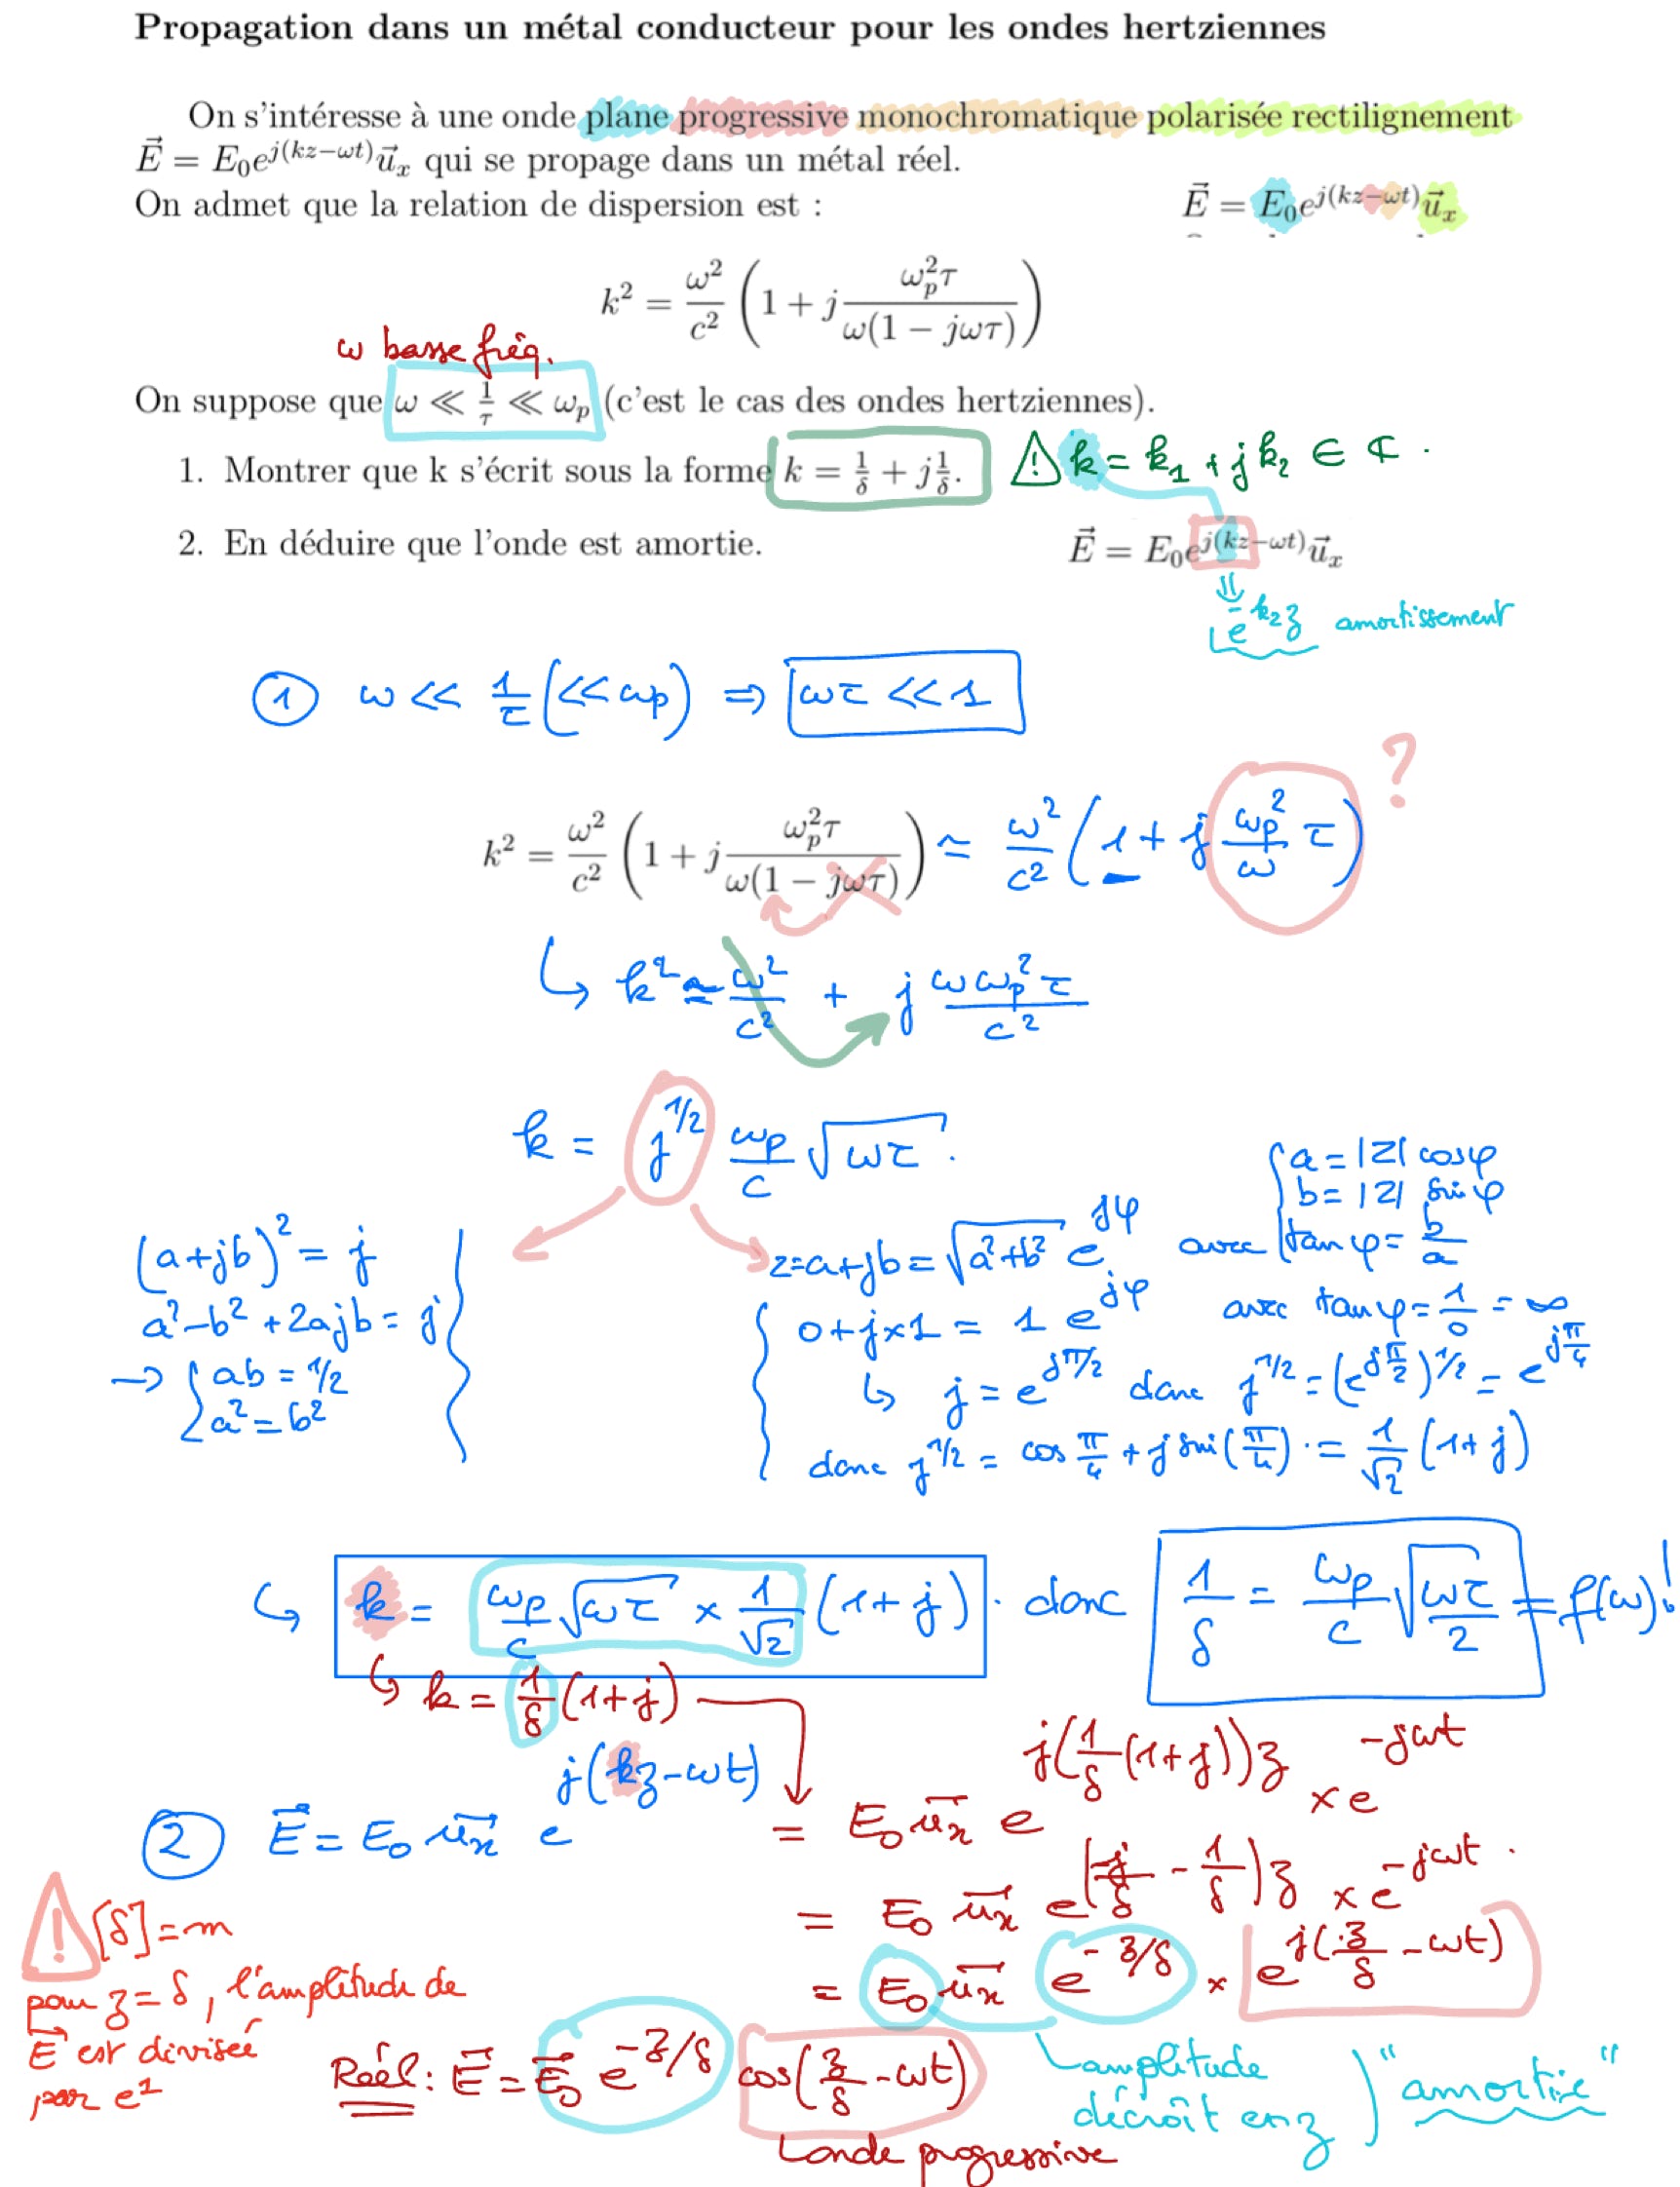 Propagation dans un métal conducteur pour les ondes hertziennes
On s'intéresse à une onde plane progressive monochromatique polarisée rectilignement
$\vec{E} = E_0 e^{j(kz-\omega t)} \vec{u}_x$ qui se propage dans un métal réel.
On admet que la relation de dispersion est :
$\vec{E} = E_0 e^{j(kz-\omega t)} \vec{u}_x$
$k^2 = \frac{\omega^2}{c^2} \left( 1 + j \frac{\omega_p^2 \tau}{\omega(1 - j\omega\tau)} \right)$
ω basse fréq.
On suppose que $\omega \ll \frac{1}{\tau} \ll \omega_p$ (c'est le cas des ondes hertziennes).
1. Montrer que k s'écrit sous la forme $k = \frac{1}{\delta} + j\frac{1}{\delta}$.
⚠ $k = k_1 + j k_2 \in ℂ$.
2. En déduire que l'onde est amortie.
$\vec{E} = E_0 e^{j(kz-\omega t)} \vec{u}_x$
⇓
$e^{-k_2 z}$ amortissement
① $\omega \ll \frac{1}{\tau} (\ll \omega_p) \Rightarrow \omega\tau \ll 1$
$k^2 = \frac{\omega^2}{c^2} \left( 1 + j \frac{\omega_p^2 \tau}{\omega(1 - j\omega\tau)} \right) \simeq \frac{\omega^2}{c^2} \left( 1 + j \frac{\omega_p^2}{\omega} \tau \right)$ ?
↳ $k^2 \simeq \frac{\omega^2}{c^2} + j \frac{\omega \omega_p^2 \tau}{c^2}$
$k = j^{1/2} \frac{\omega_p}{c} \sqrt{\omega\tau}$.
$(a+jb)^2 = j$
$a^2 - b^2 + 2ajb = j$
→ { $ab = 1/2$
$a^2 = b^2$
{ $a = |z| \cos\varphi$
$b = |z| \sin\varphi$
$z = a+jb = \sqrt{a^2+b^2} e^{j\varphi}$ avec $\tan\varphi = \frac{b}{a}$
$0 + j \times 1 = 1 e^{j\varphi}$ avec $\tan\varphi = \frac{1}{0} = \infty$
↳ $j = e^{j\pi/2}$ donc $j^{1/2} = (e^{j\frac{\pi}{2}})^{1/2} = e^{j\frac{\pi}{4}}$
donc $j^{1/2} = \cos\frac{\pi}{4} + j \sin(\frac{\pi}{4}) = \frac{1}{\sqrt{2}} (1+j)$
↳ $k = \frac{\omega_p}{c} \sqrt{\omega\tau} \times \frac{1}{\sqrt{2}} (1+j)$. donc $\frac{1}{\delta} = \frac{\omega_p}{c} \sqrt{\frac{\omega\tau}{2}} = f(\omega)!$
↳ $k = \frac{1}{\delta} (1+j)$
② $\vec{E} = E_0 \vec{u_x} e^{j(kz-\omega t)} = E_0 \vec{u_x} e^{j(\frac{1}{\delta}(1+j))z} \times e^{-j\omega t}$
$= E_0 \vec{u_x} e^{(\frac{j}{\delta} - \frac{1}{\delta})z} \times e^{-j\omega t}$.
$= E_0 \vec{u_x} e^{-z/\delta} \times e^{j(\frac{z}{\delta} - \omega t)}$
⚠ $[\delta] = m$
pour $z = \delta$, l'amplitude de
$\vec{E}$ est divisée
par $e^1$
Réel : $\vec{E} = \vec{E_0} e^{-z/\delta} \cos(\frac{z}{\delta} - \omega t)$
onde progressive
amplitude
décroît en z
"amortie"